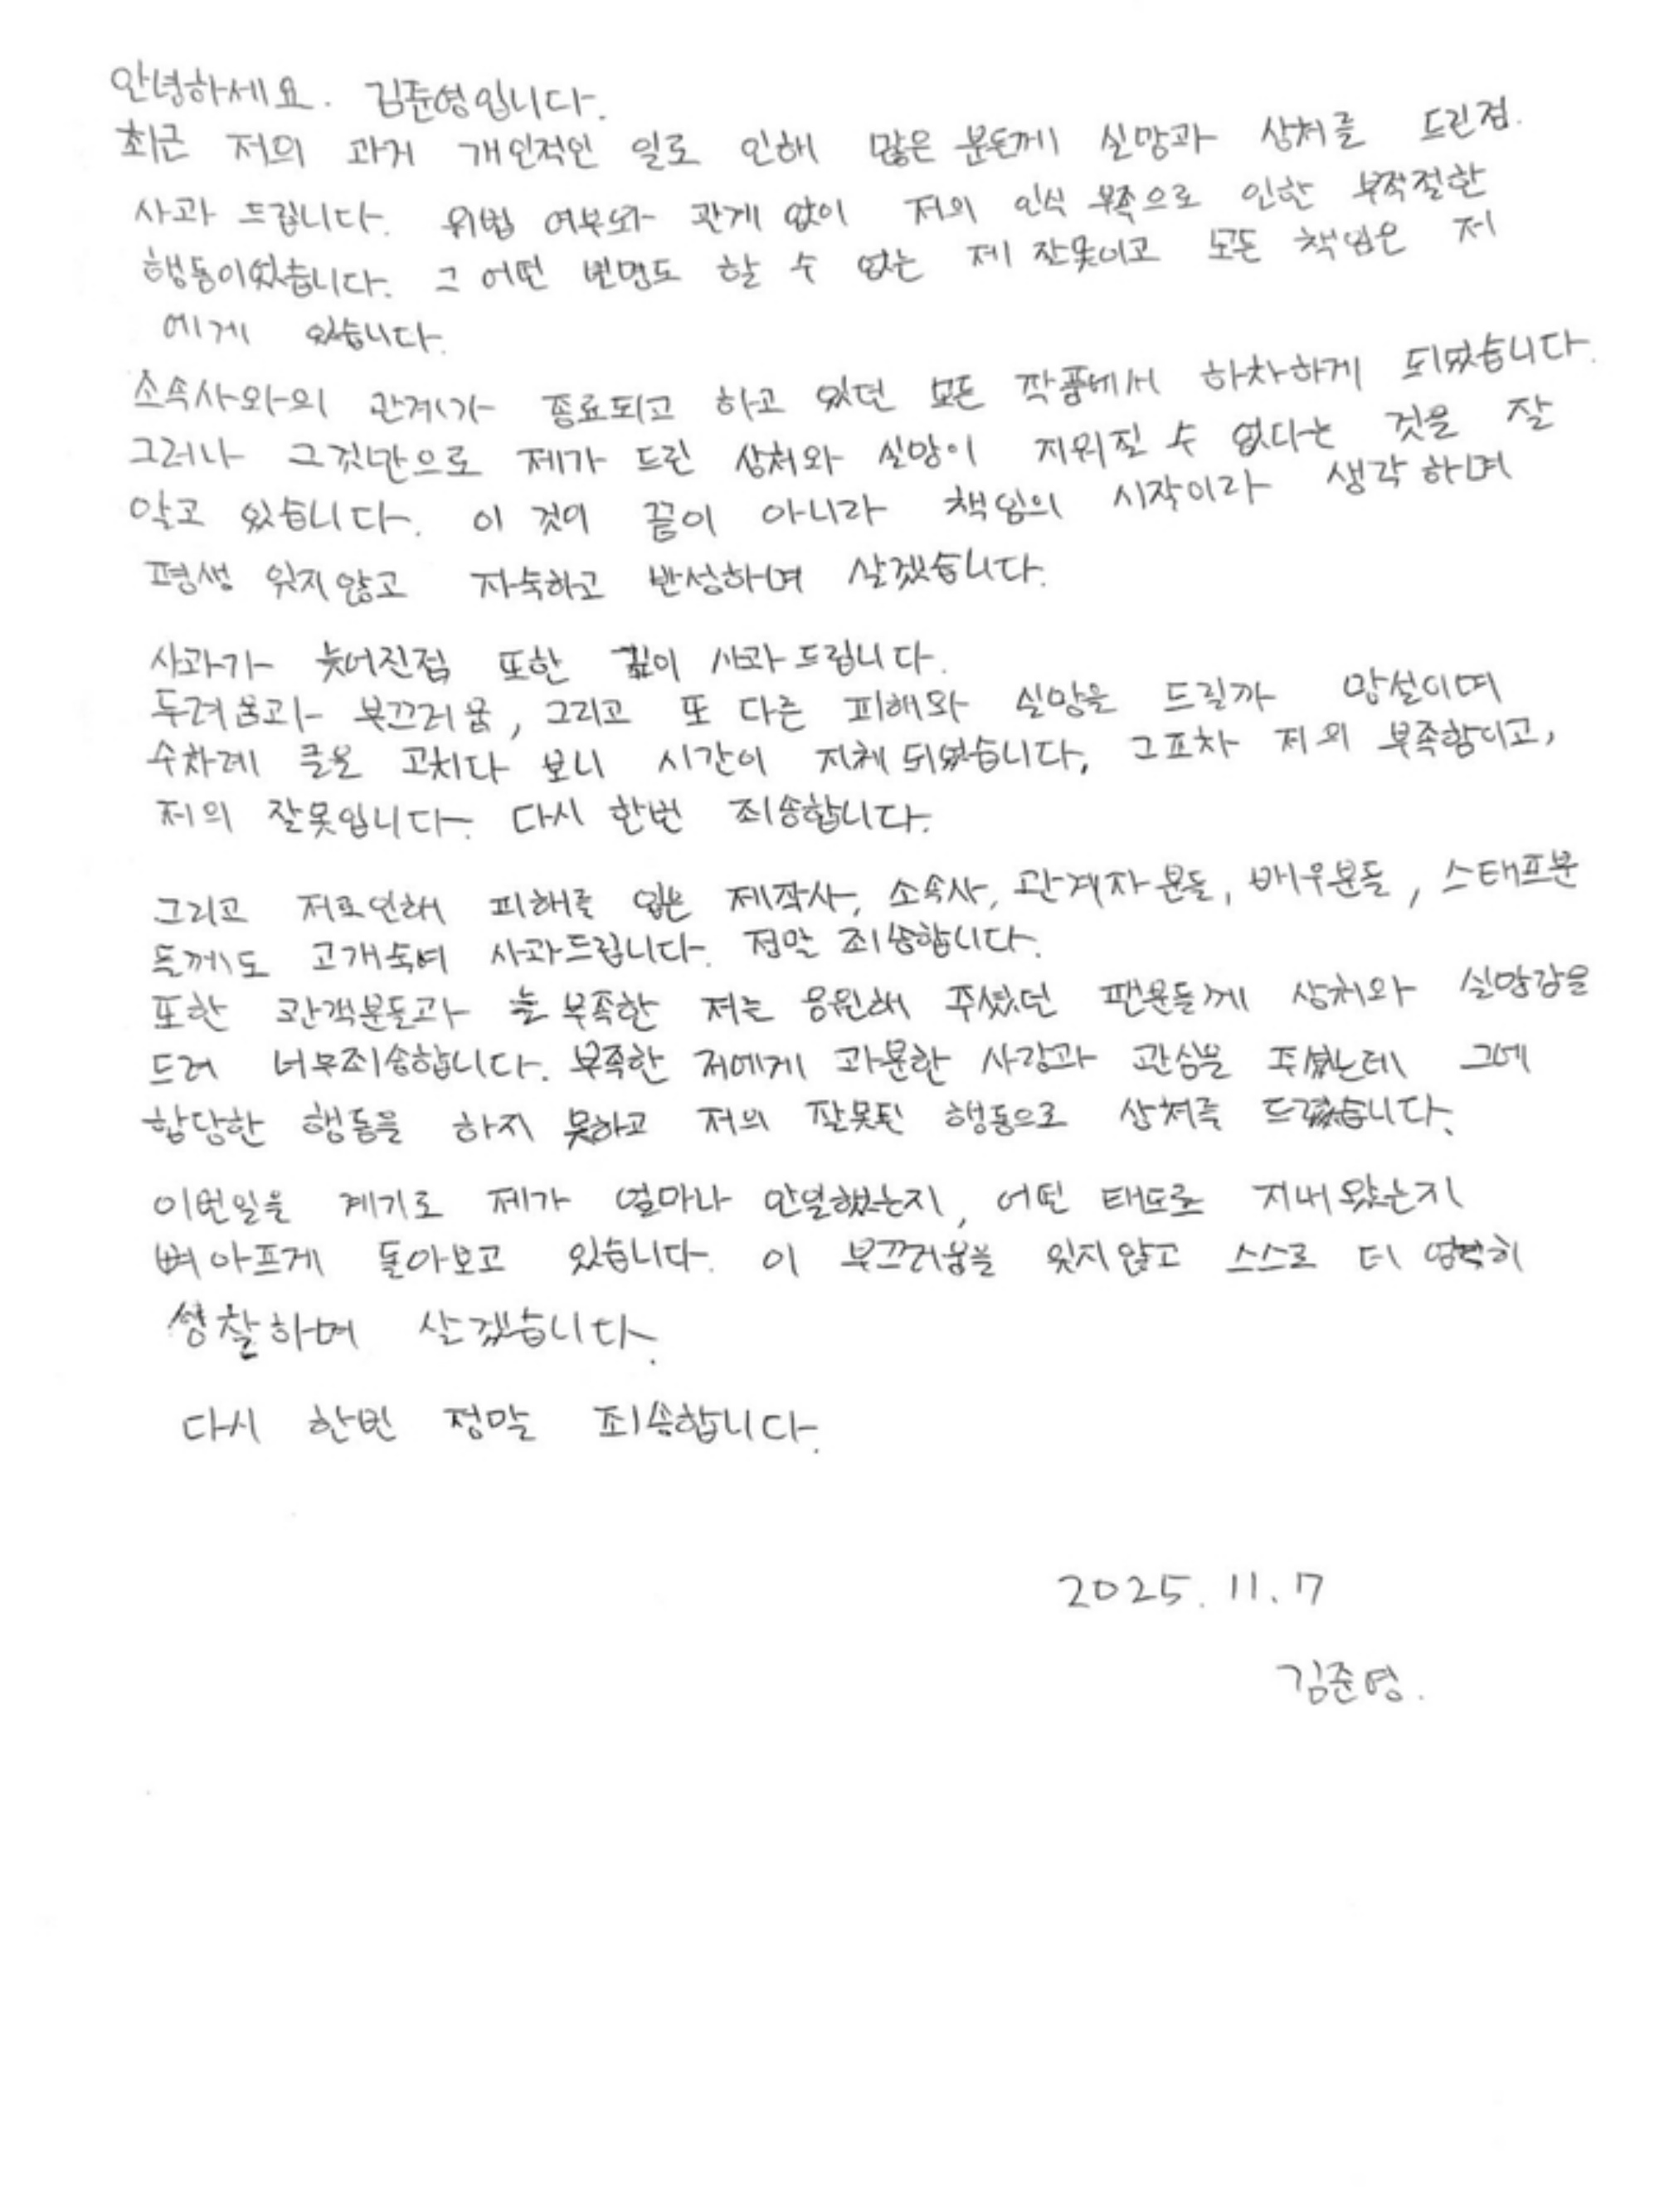 안녕하세요. 김준영입니다.
최근 저의 과거 개인적인 일로 인해 많은 분들께 실망과 상처를 드린점.
사과 드립니다. 위법 여부와 관계 없이 저의 인식 부족으로 인한 부적절한
행동이었습니다. 그 어떤 변명도 할 수 없는 제 잘못이고 모든 책임은 저
에게 있습니다.
소속사와의 관계가 종료되고 하고 있던 모든 작품에서 하차하게 되었습니다.
그러나 그것만으로 제가 드린 상처와 실망이 지워질 수 없다는 것을 잘
알고 있습니다. 이 것이 끝이 아니라 책임의 시작이라 생각하며
평생 잊지않고 자숙하고 반성하며 살겠습니다.
사과가 늦어진점 또한 깊이 사과드립니다.
두려움과 부끄러움, 그리고 또 다른 피해와 실망을 드릴까 망설이며
수차례 글을 고치다 보니 시간이 지체되었습니다. 그조차 저의 부족함이고,
저의 잘못입니다. 다시 한번 죄송합니다.
그리고 저로인해 피해를 입은 제작사, 소속사, 관계자분들, 배우분들, 스태프분
들께도 고개숙여 사과드립니다. 정말 죄송합니다.
또한 관객분들과 늘 부족한 저를 응원해 주셨던 팬분들께 상처와 실망감을
드려 너무죄송합니다. 부족한 저에게 과분한 사랑과 관심을 주셨는데 그에
합당한 행동을 하지 못하고 저의 잘못된 행동으로 상처를 드렸습니다.
이번일을 계기로 제가 얼마나 안일했는지, 어떤 태도로 지내왔는지
뼈아프게 돌아보고 있습니다. 이 부끄러움을 잊지않고 스스로 더 엄격히
성찰하며 살겠습니다.
다시 한번 정말 죄송합니다.
2025. 11. 7
김준영.